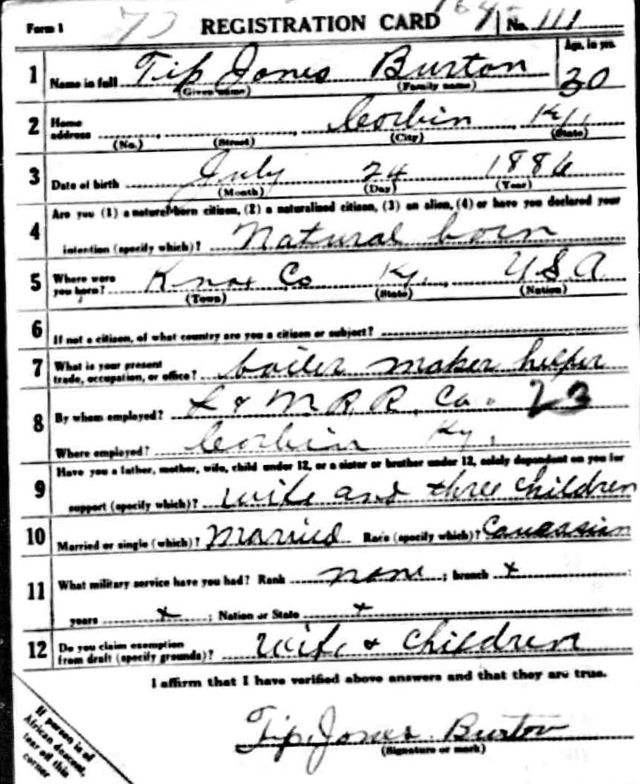 Form 1 REGISTRATION CARD No. 111
Age, in yrs.
1 Name in full Tip Jones Burton 30
(Given name) (Family name)
2 Home address Corbin Ky.
(No.) (Street) (City) (State)
3 Date of birth July 24 1886
(Month) (Day) (Year)
4 Are you (1) a natural-born citizen, (2) a naturalized citizen, (3) an alien, (4) or have you declared your
intention (specify which)? Natural born
5 Where were you born? Knox Co Ky. U.S.A
(Town) (State) (Nation)
6 If not a citizen, of what country are you a citizen or subject?
7 What is your present trade, occupation, or office? boiler maker helper
8 By whom employed? L & N R.R. Co. 23
Where employed? Corbin Ky.
9 Have you a father, mother, wife, child under 12, or a sister or brother under 12, solely dependent on you for
support (specify which)? wife and three children
10 Married or single (which)? Married Race (specify which)? Caucasian
11 What military service have you had? Rank none ; branch x
years x ; Nation or State x
12 Do you claim exemption from draft (specify grounds)? wife & children
I affirm that I have verified above answers and that they are true.
Tip Jones Burton
(Signature or mark)
If person is of
African descent,
tear off this
corner